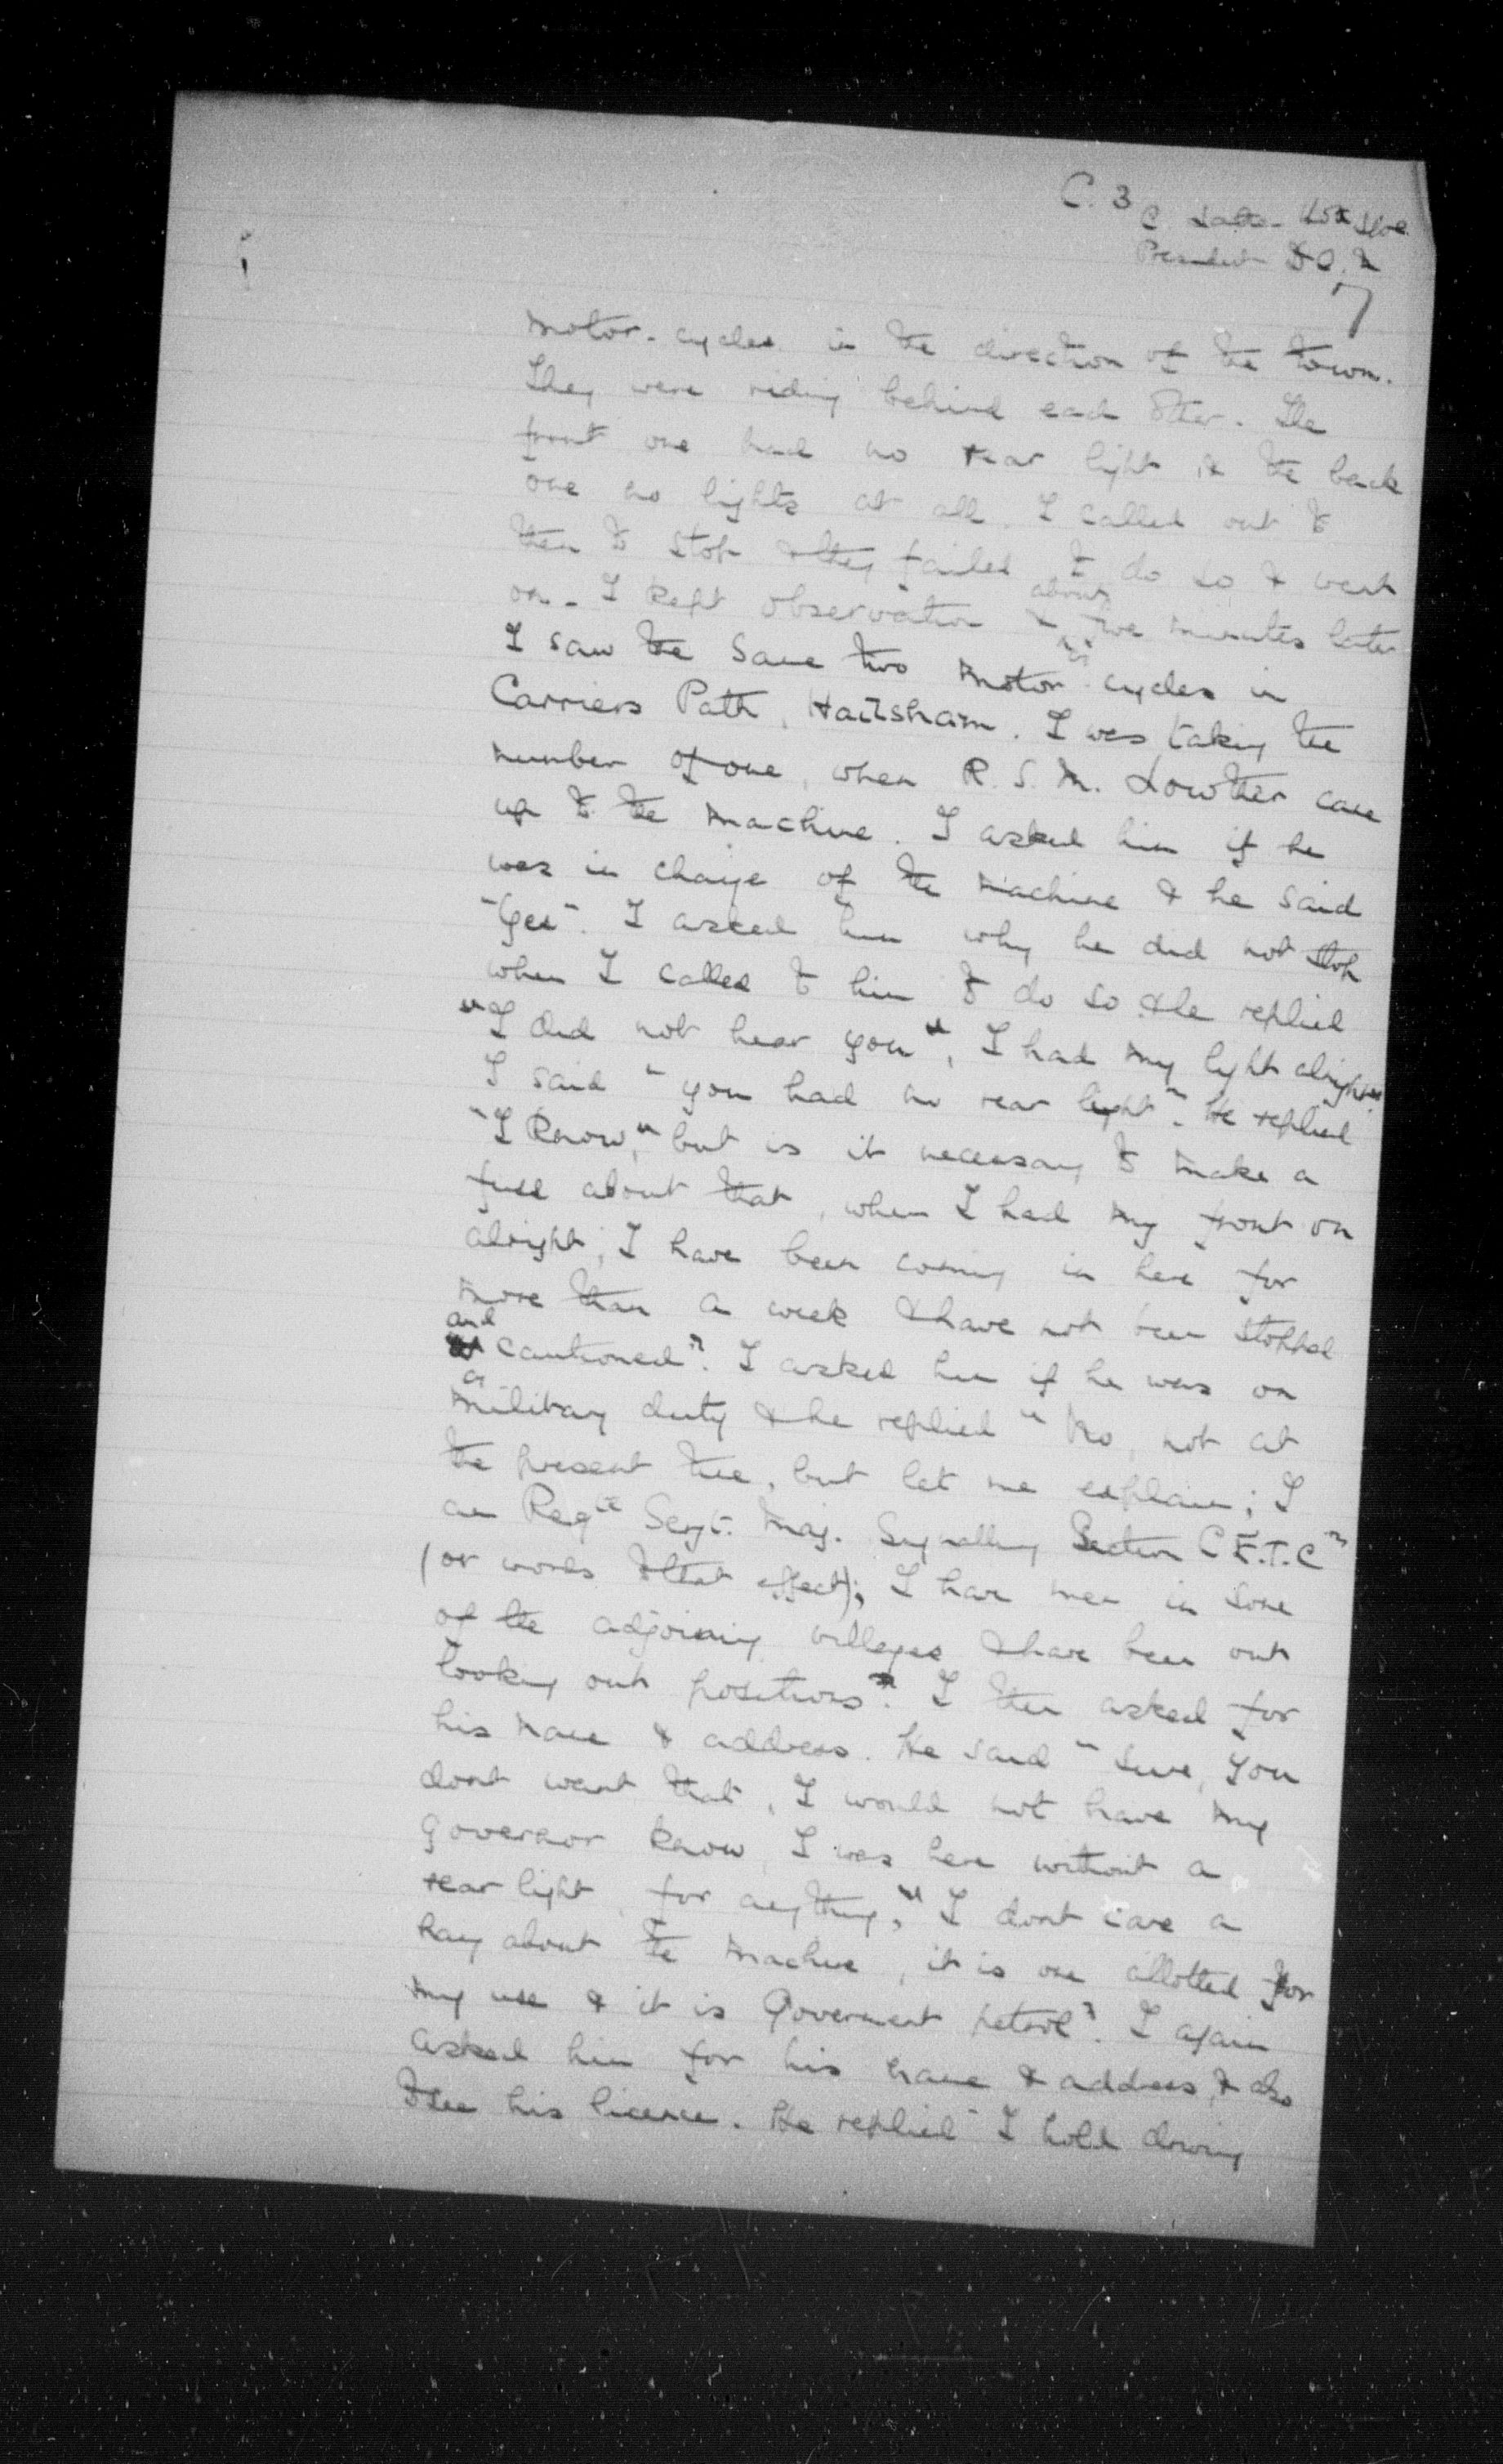 C. 3
President D.C.M
7
motor-cycles in the direction of the town.
They were riding behind each other. The
front one had no rear light & the back
one no lights at all. I called out to
them to stop & they failed to do so & went
on. I kept observation & about five minutes later
I saw the same two motor cycles in
Carriers Path, Hailsham. I was taking the
number of one, when R.S.M. Lowther came
up to the machine. I asked him if he
was in charge of the machine & he said
"Yes". I asked him why he did not stop
when I called to him to do so & he replied
"I did not hear you", I had my light alright"
I said "you had no rear light". He replied
"I know," but is it necessary to make a
fuss about that, when I had my front on
alright, I have been coming in here for
more than a week & have not been stopped
and
or cautioned". I asked him if he was on
military duty & he replied "No, not at
the present time, but let me explain; I
am Regtl Sergt. Maj. Signalling Section C.E.T.C"
(or words to that effect); I have men in some
of the adjoining villages & have been out
looking out positions". I then asked for
his name & address. He said "Sure, you
dont want that, I would not have my
governor know I was here without a
rear light for anything," I dont care a
hang about the machine, it is one allotted for
my use & it is Goverment petrol". I again
asked him for his name & address, & also
to see his licence. He replied "I hold driving